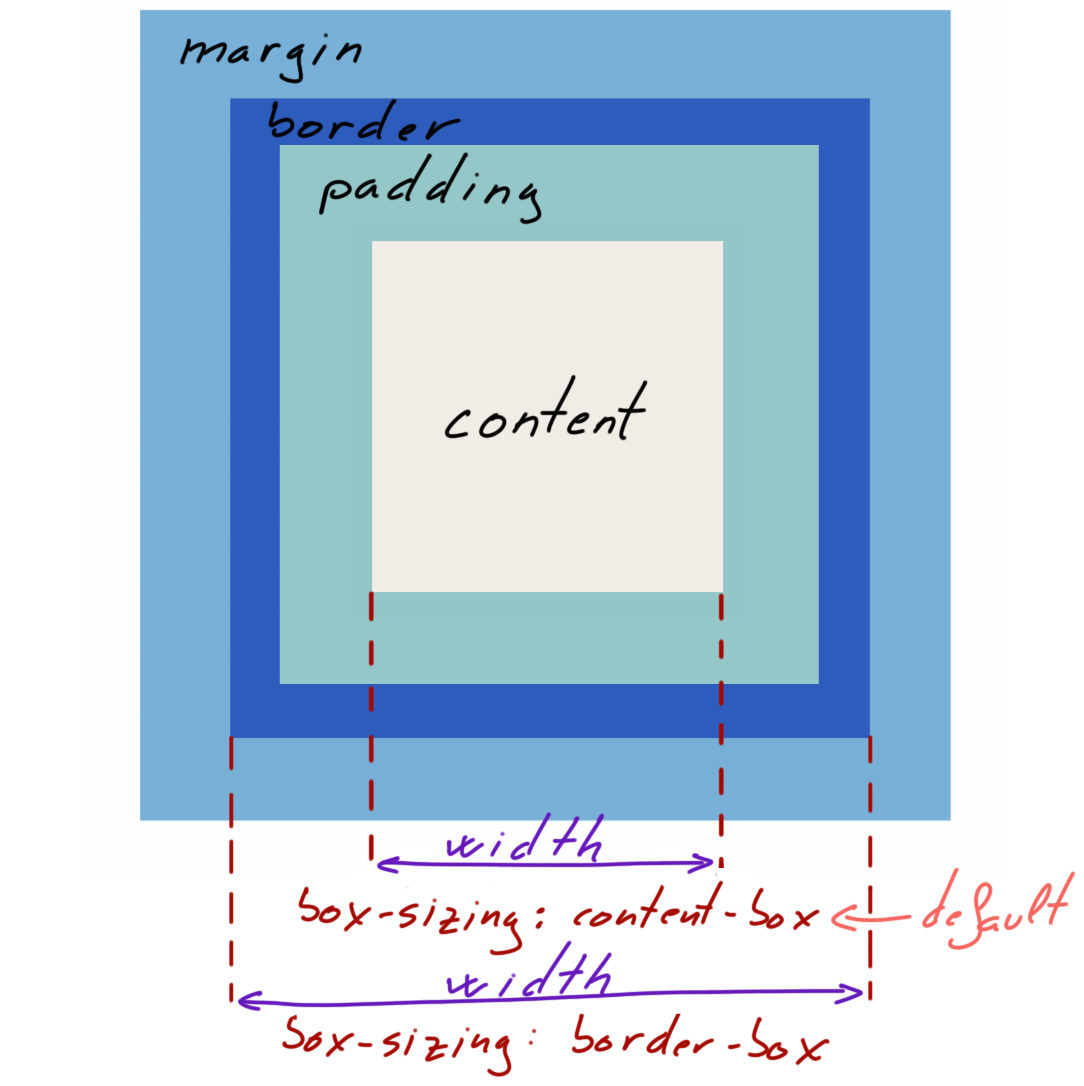 margin
border
padding
content
width
box-sizing: content-box
default
width
box-sizing: border-box